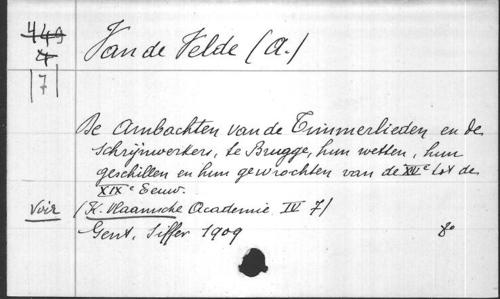 449
4
Van de Velde (A.)
7
De Ambachten van de Timmerlieden en de
Schrijnwerkers, te Brugge, hun wetten, hun
geschillen en hun gewrochten van de XVe tot de
XIXe Eeuw.
Voir (K. Vlaamsche Academie IV 7)
Gent, Siffer 1909 8o